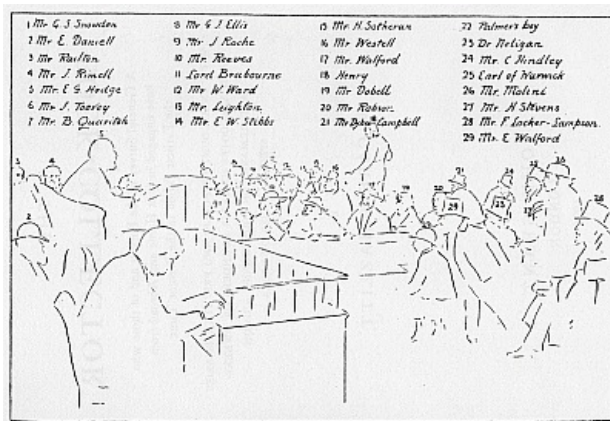 1 Mr G. S. Snowden
2 Mr E. Daniell
3 Mr Railton
4 Mr J. Rimell
5 Mr E G Hodge
6 Mr J. Toovey
7 Mr. B. Quaritch
8 Mr G J Ellis
9 Mr J Roche
10 Mr. Reeves
11 Lord Brabourne
12 Mr W. Ward
13 Mr. Leighton
14 Mr E W Stibbs
15 Mr H. Sotheran
16 Mr Westell
17 Mr. Walford
18 Henry
19 Mr Dobell
20 Mr Robson
21 Mr Dykes Campbell
22 Palmer's boy
23 Dr Neligan
24 Mr C Hindley
25 Earl of Warwick
26 Mr. Molini
27 Mr. H Stevens
28 Mr. F Locker-Lampson
29 Mr. E Walford